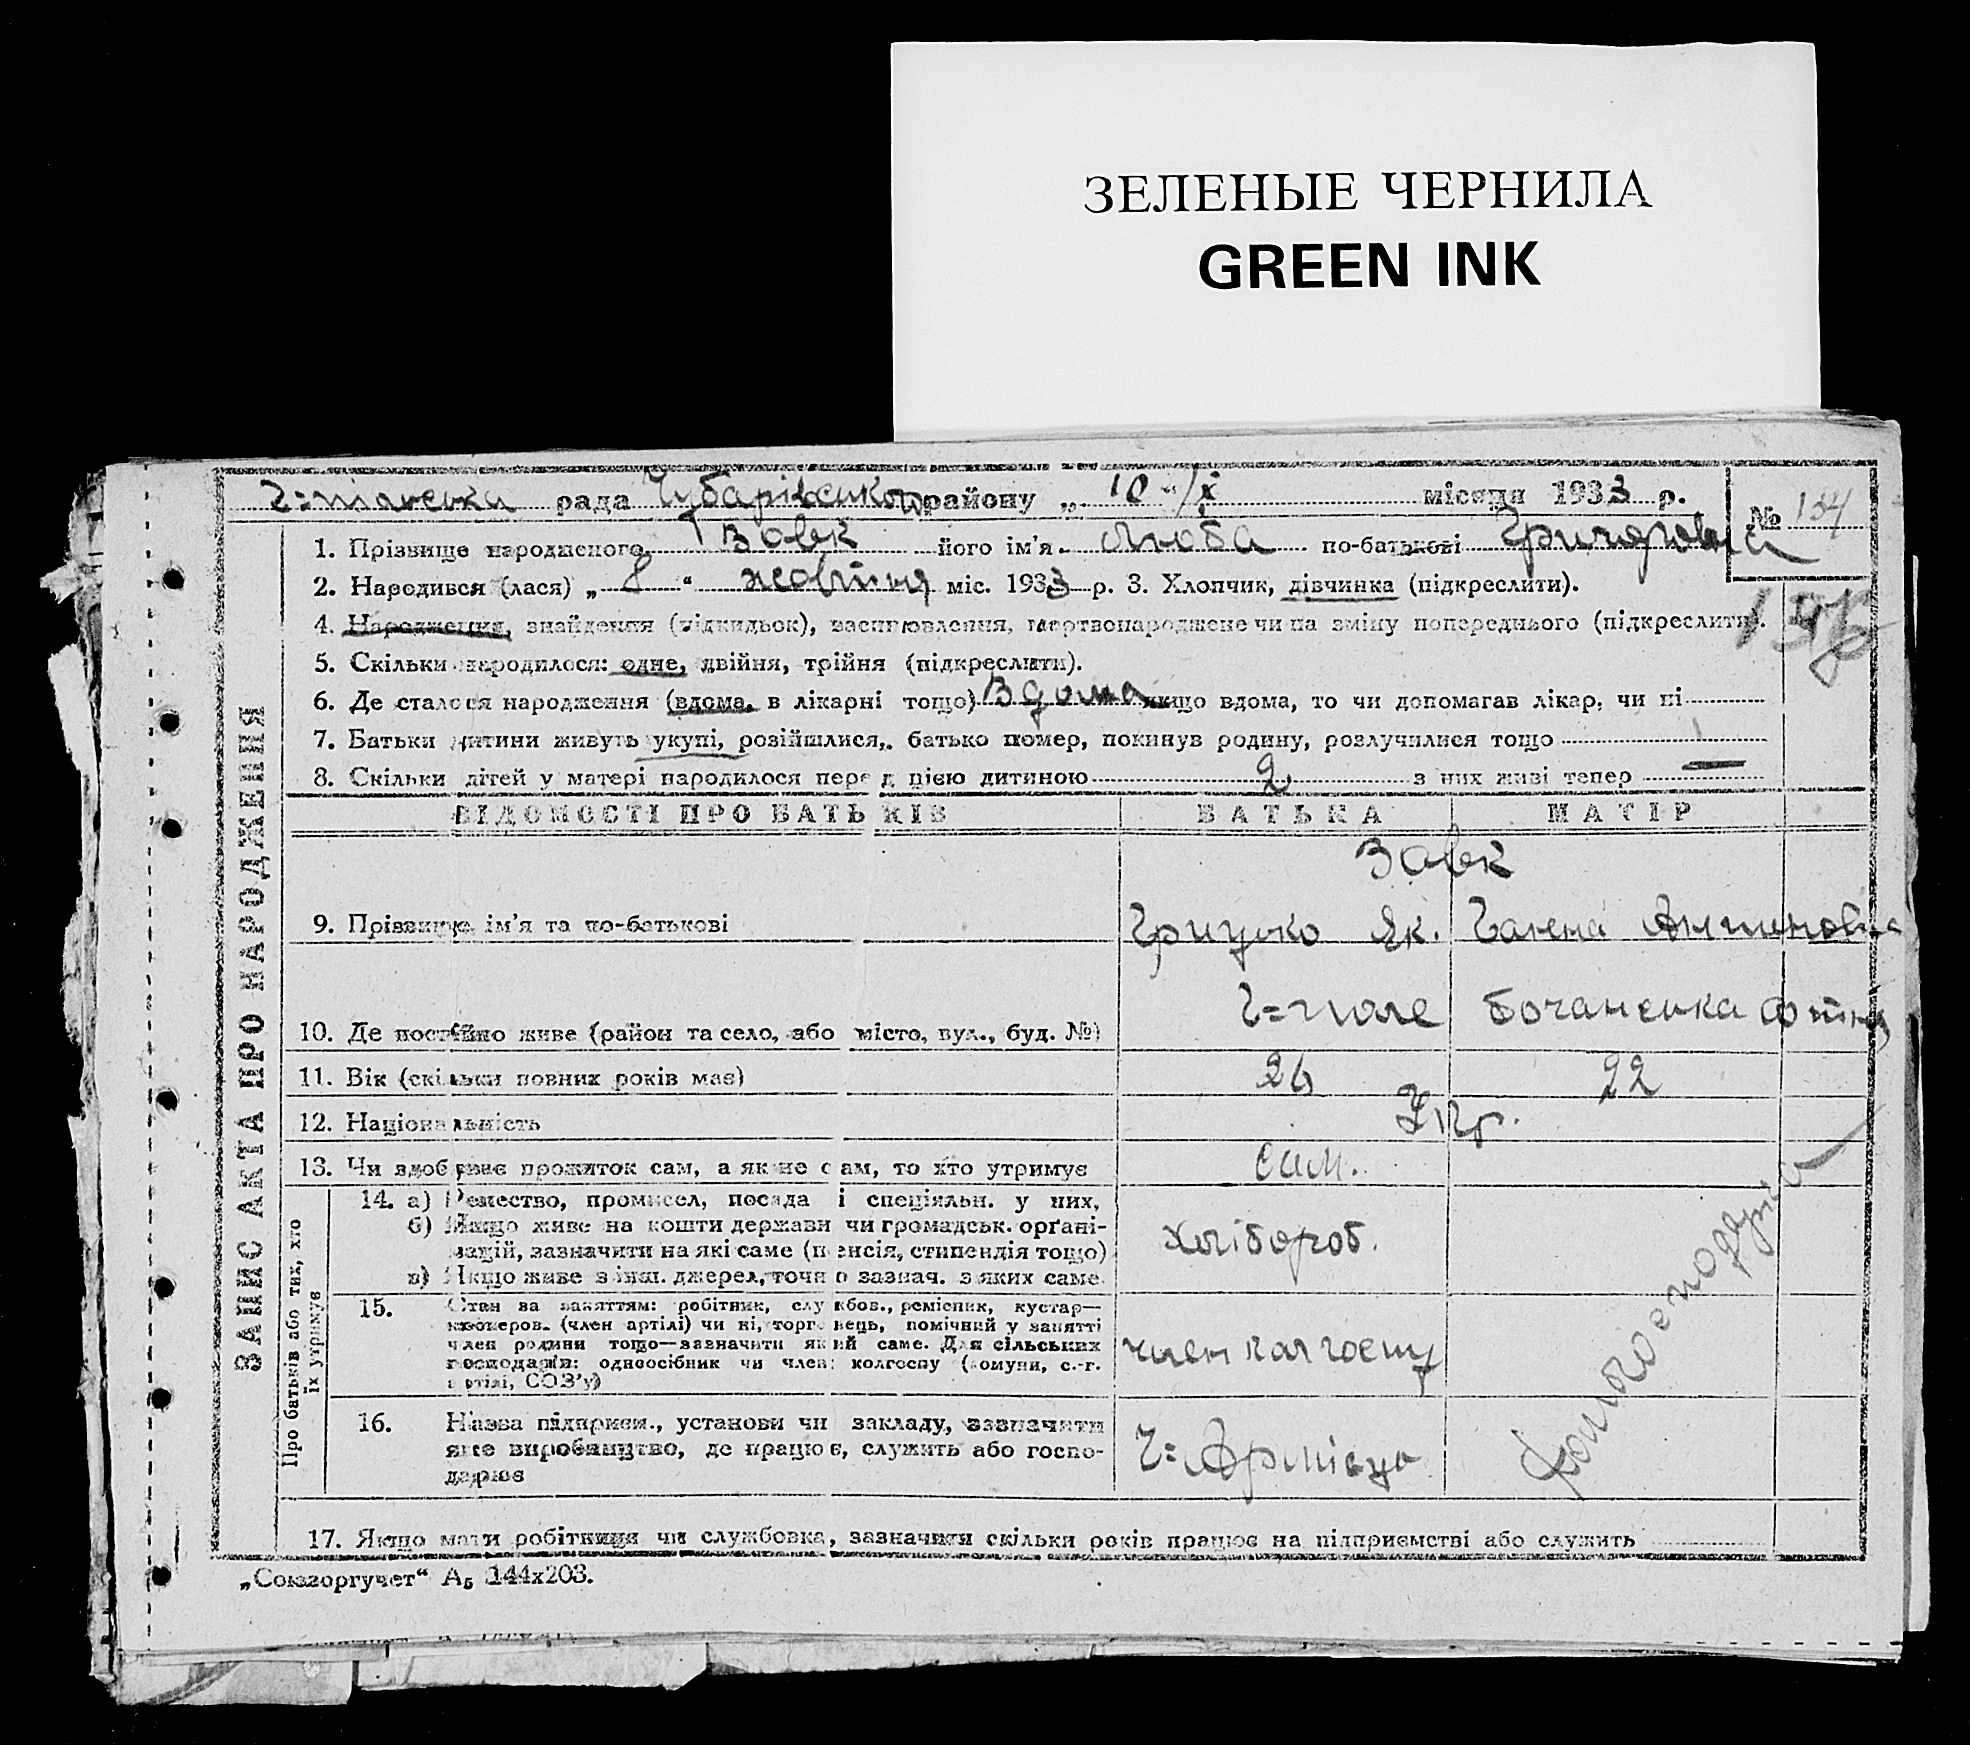 ЗЕЛЕНЫЕ ЧЕРНИЛА
GREEN INK
рада Чубарівського району „ 10 “ / X місяця 1933 р.
№ 134
1. Прізвище народженого Вовк його ім'я Люба по-батькові Григоровна
2. Народився (лася) „ 8 “ жовтня міс. 1933 р. 3. Хлопчик, дівчинка (підкреслити).
4. Народження, знайдення (підкидьок), усиновлення, мертвонароджене чи на зміну попереднього (підкреслити).
5. Скільки народилося: одне, двійня, трійня (підкреслити).
6. Де сталося народження (вдома, в лікарні тощо) Вдома якщо вдома, то чи допомагав лікар, чи ні
7. Батьки дитини живуть укупі, розійшлися, батько помер, покинув родину, розлучилися тощо
8. Скільки дітей у матері народилося перед цією дитиною 2 з них живі тепер —
ЗАПИС АКТА ПРО НАРОДЖЕННЯ
ВІДОМОСТІ ПРО БАТЬКІВ БАТЬКА МАТІР
Вовк
9. Прізвище, ім'я та по-батькові Грицько Як. Ганна Антиновна
Г=поле
10. Де постійно живе (район та село, або місто, вул., буд. №)
11. Вік (скільки повних років має) 26 22
12. Національність Укр.
13. Чи здобуває прожиток сам, а як не сам, то хто утримує сам.
Про батьків або тих, хто їх утримує
14. а) Ремество, промисел, посада і спеціяльн. у них,
б) Якщо живе на кошти держави чи громадськ. орґані-
зацій, зазначити на які саме (пенсія, стипендія тощо)
в) Якщо живе з інш. джерел, точно зазнач. з яких саме
хлібороб.
15. Стан за заняттям: робітник, службов., ремісник, кустар—
кооперов. (член артілі) чи ні, торговець, помічний у занятті
член родини тощо—зазначити який саме. Для сільських
господарів: одноосібник чи член колгоспу (комуни, с.-г.
артілі, СОЗ'у)
член колгоспу
16. Назва підприєм., установи чи закладу, зазначити
яке виробництво, де працює, служить або госпо-
дарює
17. Якщо мати робітниця чи службовка, зазначити скільки років працює на підприємстві або служить
„Союзоргучет“ А₅ 144х203.